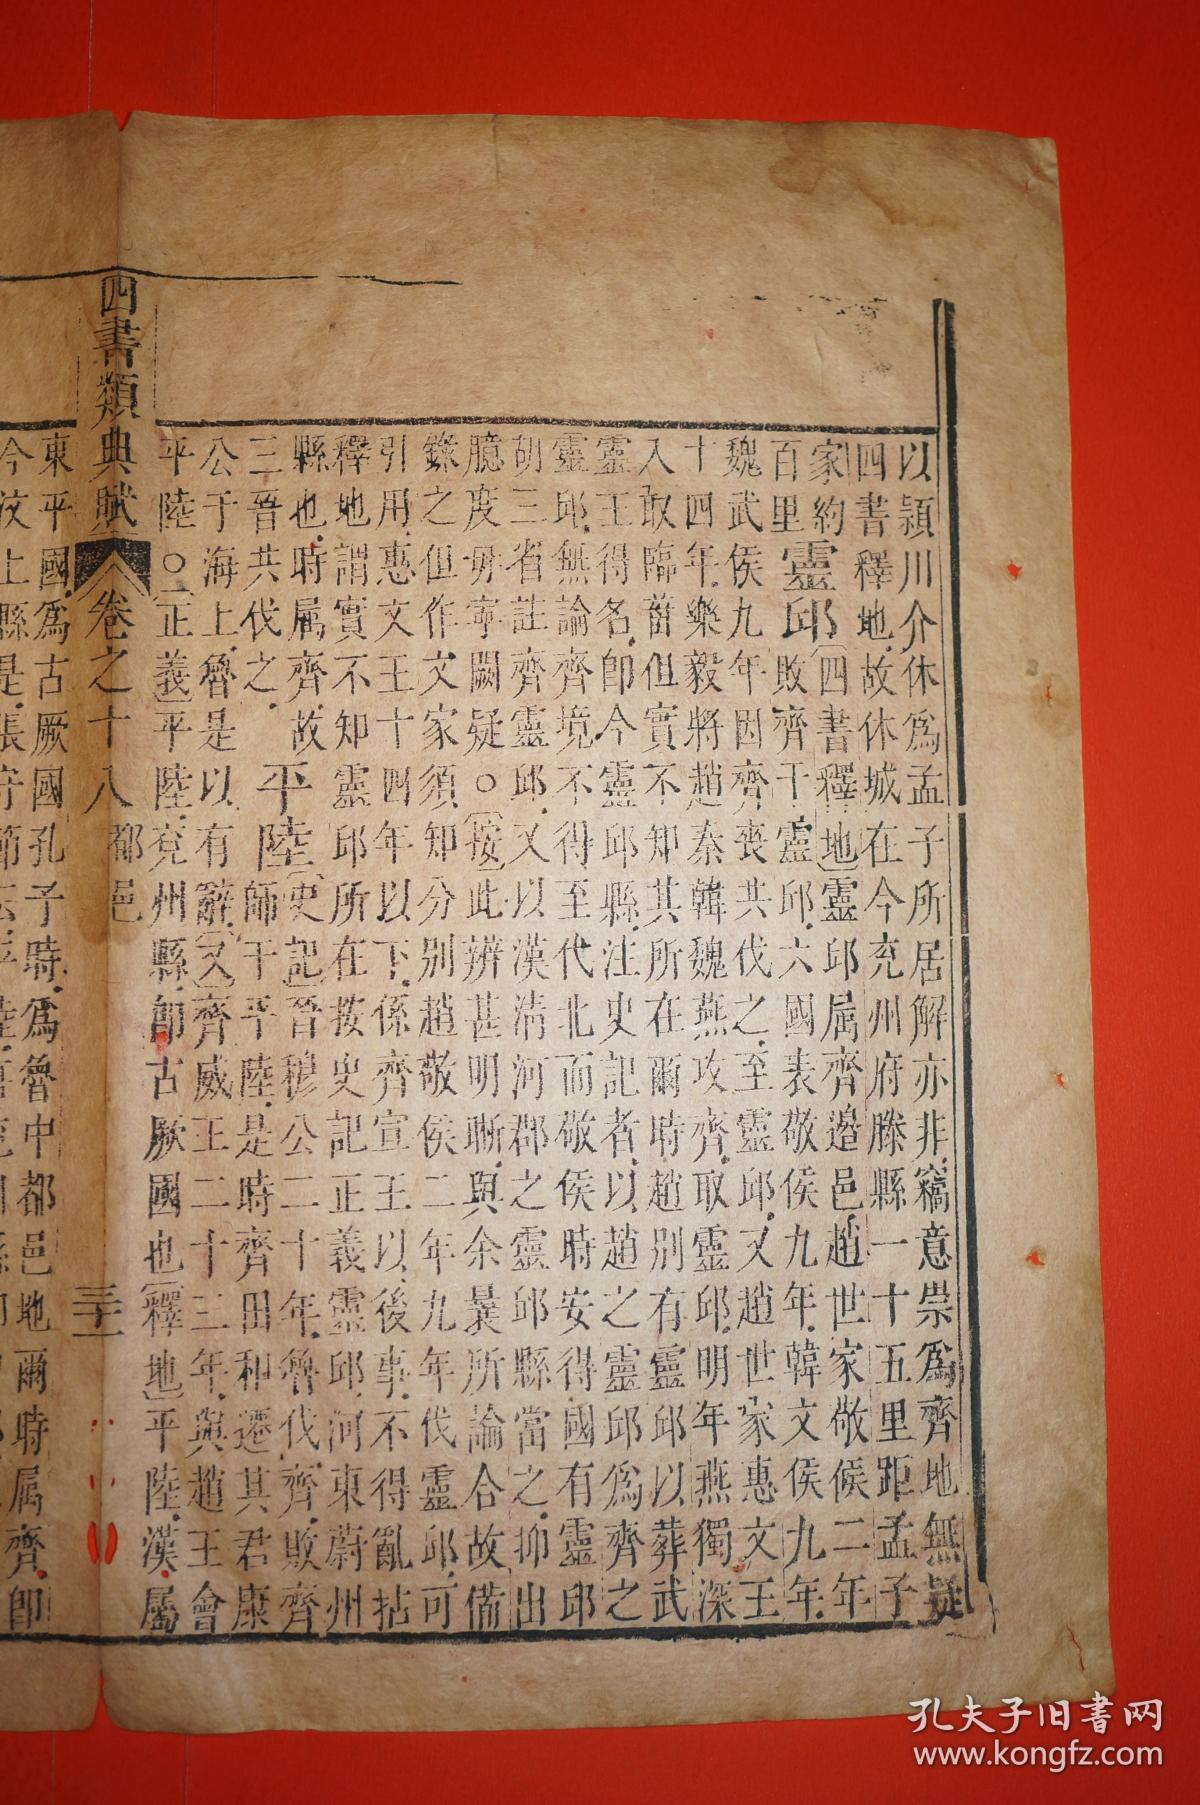 以頴川介休爲孟子所居解亦非竊意崇爲齊地無疑
四書釋地故休城在今兖州府滕縣一十五里距孟子
家約
百里靈邱四書釋地靈邱屬齊邊邑趙世家敬侯二年
敗齊于靈邱六國表敬侯九年韓文侯九年
魏武侯九年因齊喪共伐之至靈邱又趙世家惠文王
十四年樂毅將趙秦韓魏燕攻齊取靈邱明年燕獨深
入取臨菑但實不知其所在爾時趙別有靈邱以葬武
靈王得名卽今靈邱縣注史記者以趙之靈邱爲齊之
靈邱無論齊境不得至代北而敬侯時安得國有靈邱
胡三省註齊靈邱又以漢淸河郡之靈邱縣當之抑出
臆度毋寧闕疑○按此辨甚明晰與余曩所論合故備
錄之但作文家須知分別趙敬侯二年九年伐靈邱可
引用惠文王十四年以下係齊宣王以後事不得亂拈
釋地謂實不知靈邱所在按史記正義靈邱河東蔚州
縣也時屬齊故
平陸史記晉穆公二十年魯伐齊敗齊
三晉共伐之
師于平陸是時齊田和遷其君康
公于海上魯是以有辭又齊威王二十三年與趙王會
平陸○正義平陸兖州縣卽古厥國也釋地平陸漢屬
四書類典賦 卷之十八 都邑 三十一
東平國爲古厥國孔子時爲魯中都邑地爾時屬齊卽
今汶上縣是張守節云平陸
孔夫子旧书网
www.kongfz.com